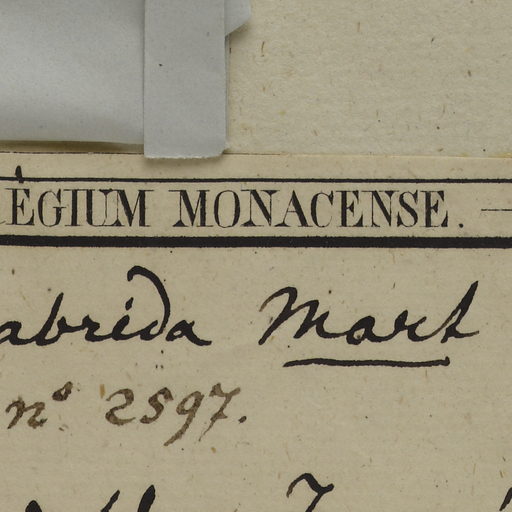 EGIUM MONACENSE.
abrida Mart
nº 2597.